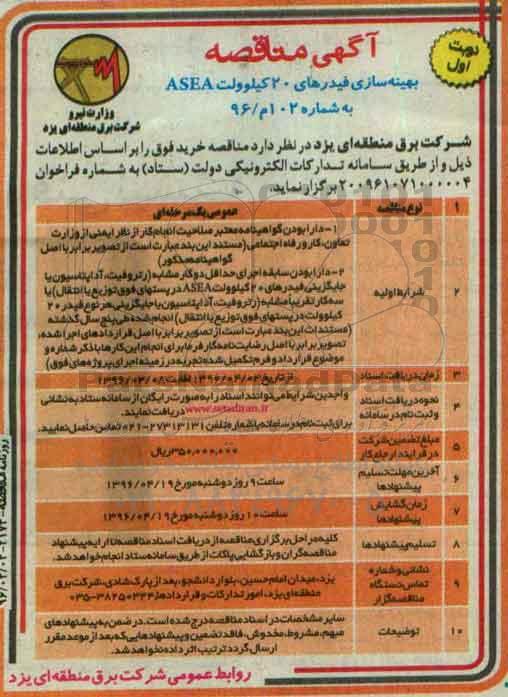 آگهی مناقصه
نوبت اول
بهینه‌سازی فیدرهای ۲۰ کیلوولت ASEA
به شماره ۱۰۲م/۹۶
وزارت نیرو
شرکت برق منطقه‌ای یزد
شرکت برق منطقه‌ای یزد در نظر دارد مناقصه خرید فوق را بر اساس اطلاعات
ذیل و از طریق سامانه تدارکات الکترونیکی دولت (ستاد) به شماره فراخوان
۲۰۰۹۶۱۰۷۱۰۰۰۰۰۴ برگزار نماید.
۱ نوع مناقصه عمومی یک مرحله‌ای
۲ شرایط اولیه
۱- دارا بودن گواهینامه معتبر صلاحیت انجام کار از نظر ایمنی از وزارت
تعاون، کار و رفاه اجتماعی (مستند این بند عبارت است از تصویر برابر با اصل
گواهینامه مذکور)
۲- دارا بودن سابقه اجرای حداقل دو کار مشابه (رتروفیت، آداپتاسیون یا
جایگزینی فیدرهای ۲۰ کیلوولت ASEA در پستهای فوق توزیع یا انتقال) یا
سه کار تقریباً مشابه (رتروفیت، آداپتاسیون یا جایگزینی هر نوع فیدر ۲۰
کیلوولت در پستهای فوق توزیع یا انتقال) انجام شده طی پنج سال گذشته
(مستندات این بند عبارت است از تصویر برابر با اصل قراردادهای اجرا شده،
تصویر برابر با اصل رضایت نامه کارفرما برای انجام این کارها با ذکر شماره و
موضوع قرارداد و فرم تکمیل شده تجربه در زمینه اجرای پروژه‌های فوق)
۳ زمان دریافت اسناد از تاریخ ۱۳۹۶/۰۳/۰۳ لغایت ۱۳۹۶/۰۳/۰۸
۴ نحوه دریافت اسناد و ثبت نام در سامانه
واجدین شرایط می‌توانند اسناد را به صورت رایگان از سامانه ستاد به نشانی
www.setadiran.ir دریافت نمایند.
برای ثبت نام در سامانه با شماره تلفن ۲۷۳۱۳۱۳۱-۰۲۱ تماس حاصل نمایید.
۵ مبلغ تضمین شرکت در فرآیند ارجاع کار ۳۵۰,۰۰۰,۰۰۰ ریال
۶ آخرین مهلت تسلیم پیشنهادها ساعت ۹ روز دوشنبه مورخ ۱۳۹۶/۰۴/۱۹
۷ زمان گشایش پیشنهادها ساعت ۱۰ روز دوشنبه مورخ ۱۳۹۶/۰۴/۱۹
۸ تسلیم پیشنهادها
کلیه مراحل برگزاری مناقصه از دریافت اسناد مناقصه تا ارایه پیشنهاد
مناقصه‌گران و بازگشایی پاکات از طریق سامانه ستاد انجام خواهد شد.
۹ نشانی و شماره تماس دستگاه مناقصه‌گزار
یزد، میدان امام حسین، بلوار دانشجو، بعد از پارک شادی، شرکت برق
منطقه‌ای یزد، امور تدارکات و قراردادها، ۳۸۲۵۰۳۳۴-۰۳۵
۱۰ توضیحات
سایر مشخصات در اسناد مناقصه درج شده است. در ضمن به پیشنهادهای
مبهم، مشروط، مخدوش، فاقد تضمین و پیشنهادهایی که بعد از موعد مقرر
ارسال گردد ترتیب اثر داده نخواهد شد.
روابط عمومی شرکت برق منطقه‌ای یزد